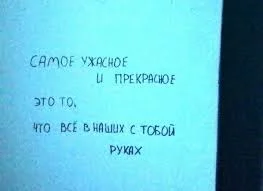 САМОЕ УЖАСНОЕ
И ПРЕКРАСНОЕ
ЭТО ТО,
ЧТО ВСЁ В НАШИХ С ТОБОЙ
РУКАХ